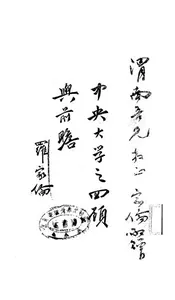 渭南吾兄教正 家倫敬贈
中央大學之回顧
與前瞻
羅家倫